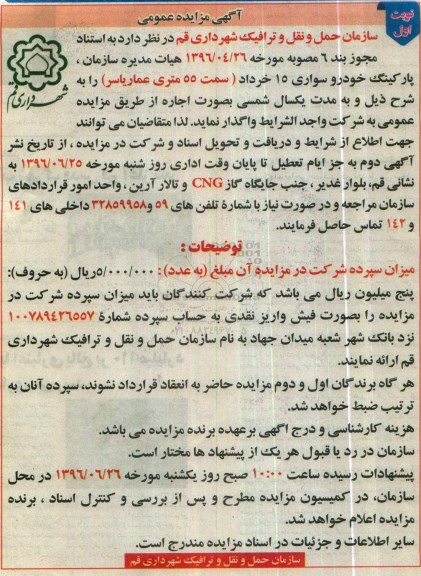 آگهی مزایده عمومی
نوبت اول
سازمان حمل و نقل و ترافیک شهرداری قم در نظر دارد به استناد
مجوز بند ۶ مصوبه مورخه ۱۳۹۶/۰۴/۲۶ هیات مدیره سازمان ،
پارکینگ خودرو سواری ۱۵ خرداد ( سمت ۵۵ متری عماریاسر) را به
شرح ذیل و به مدت یکسال شمسی بصورت اجاره از طریق مزایده
عمومی به شرکت واجد الشرایط واگذار نماید. لذا متقاضیان می توانند
جهت اطلاع از شرایط و دریافت و تحویل اسناد و شرکت در مزایده ، از تاریخ نشر
آگهی دوم به جز ایام تعطیل تا پایان وقت اداری روز شنبه مورخه ۱۳۹۶/۰۶/۲۵ به
نشانی قم، بلوار غدیر ، جنب جایگاه گاز CNG و تالار آرین ، واحد امور قراردادهای
سازمان مراجعه و در صورت نیاز با شمارهٔ تلفن های ۵۹ و۳۲۸۵۹۹۵۸ داخلی های ۱۴۱
و ۱۴۲ تماس حاصل فرمایند.
شهرداری قم
توضیحات :
میزان سپرده شرکت در مزایده آن مبلغ (به عدد): ۵/۰۰۰/۰۰۰ریال (به حروف):
پنج میلیون ریال می باشد که شرکت کنندگان باید میزان سپرده شرکت در
مزایده را بصورت فیش واریز نقدی به حساب سپرده شمارهٔ ۱۰۰۷۸۹۴۲۶۵۵۷
نزد بانک شهر شعبه میدان جهاد به نام سازمان حمل و نقل و ترافیک شهرداری
قم ارائه نمایند.
هر گاه برندگان اول و دوم مزایده حاضر به انعقاد قرارداد نشوند، سپرده آنان به
ترتیب ضبط خواهد شد.
هزینه کارشناسی و درج آگهی برعهده برنده مزایده می باشد.
سازمان در رد یا قبول هر یک از پیشنهاد ها مختار است.
پیشنهادات رسیده ساعت ۱۰:۰۰ صبح روز یکشنبه مورخه ۱۳۹۶/۰۶/۲۶ در محل
سازمان، در کمیسیون مزایده مطرح و پس از بررسی و کنترل اسناد ، برنده
مزایده اعلام خواهد شد.
سایر اطلاعات و جزئیات در اسناد مزایده مندرج است.
سازمان حمل و نقل و ترافیک شهرداری قم